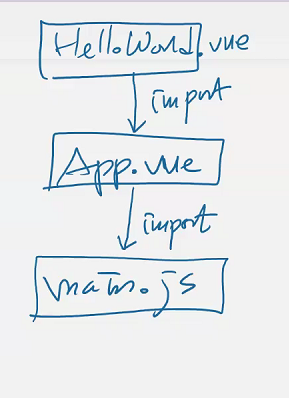 HelloWorld.vue
import
App.vue
import
main.js